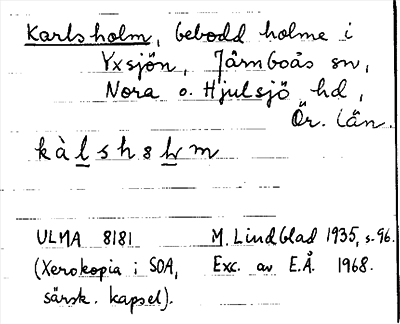 Karlsholm, bebodd holme i
Yxsjön, Järnboås sn,
Nora o. Hjulsjö hd,
Ör. län.
kàlshɜlm
ULMA 8181 M. Lindblad 1935, s. 96.
(Xerokopia i SOA, Exc. av E.Å. 1968.
särsk. kapsel).